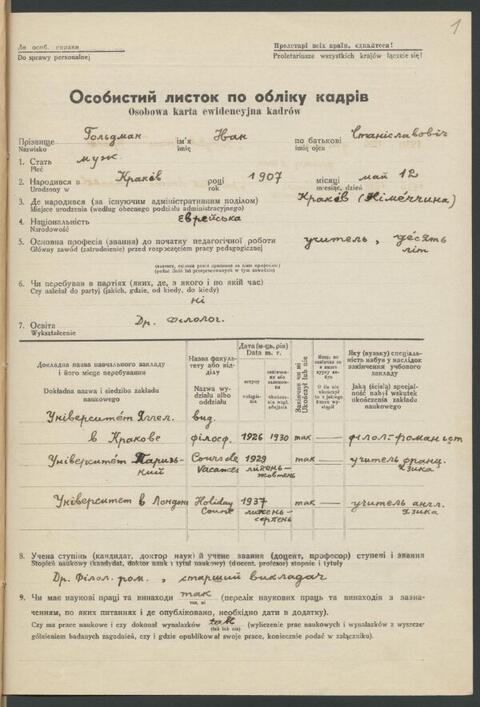 1
До особ. справи
Do sprawy personalnej
Пролетарі всіх країн, єднайтеся!
Proletariusze wszystkich krajów łączcie się!
Особистий листок по обліку кадрів
Osobowa karta ewidencyjna kadrów
Прізвище Гольдман ім'я Іван по батькові Станіславовіч
Nazwisko imię imię ojca
1. Стать муж
Płeć
2. Народився в Кракёв році 1907 місяці май 12
Urodzony w roku miesiąc, dzień
3. Де народився (за існуючим адміністративним поділом) Кракёв (Німéччина)
Miejsce urodzenia (według obecnego podziału administracyjnego)
4. Національність Еврейська
Narodowość
5. Основна професія (звання) до початку педагогічної роботи учитель, дéсять
Główny zawód (zatrudnienie) przed rozpoczęciem pracy pedagogicznej літ
6. Чи перебував в партіях (яких, де, з якого і по який час)
Czy należał do partyj (jakich, gdzie, od kiedy, do kiedy)
ні
7. Освіта Др. Філолог.
Wykształcenie
Докладна назва навчального закладу і його місце перебування
Dokładna nazwa i siedziba zakładu naukowego
Назва факультету або відділу
Nazwa wydziału albo oddziału
Дата (м-ць, рік)
Data m. r.
вступу
Закінчив чи ні
Ukończył lub nie
Яку (вузьку) спеціальність набув у наслідок закінчення учбового закладу
Jaką (ścisłą) specjalność nabył wskutek ukończenia zakładu naukowego
Універсітéт Ягел. вид.
в Кракове філосф. 1926 1930 так — філол-романьст
Універсітéт Паризь- Cours de 1929 так — учитель франц.
кий Vacances липень- язика
жовтень
Універсітéт в Лондоні Holiday 1937 так — учитель англ.
Course липень- язика
серпень
8. Учена ступінь (кандидат, доктор наук) й учене звання (доцент, професор) ступені і звання
Stopień naukowy (kandydat, doktor nauk i tytuł naukowy) (docent, profesor) stopnie i tytuły
Др. Філол. ром., старший викладач
9. Чи має наукові праці та винаходи так (перелік наукових праць та винаходів з зазна-
так, ні
ченням, по яких питаннях і де опубліковано, необхідно дати в додатку).
Czy ma prace naukowe i czy dokonał wynalazków tak (wyliczenie prac naukowych i wynalazków z wyszcze-
(tak lub nie)
gólnieniem badanych zagadnień, czy i gdzie opublikował swoje prace, koniecznie podać w załączniku).